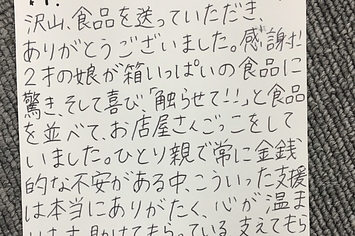 沢山、食品を送っていただき
ありがとうございました。感謝!!
2才の娘が箱いっぱいの食品に
驚き、そして喜び、「触らせて!!」と食品
を並べて、お店屋さんごっこをして
いました。ひとり親で常に金銭
的な不安がある中、こういった支援
は本当にありがたく、心が温まり
ます。助けてもらっている、支えてもら